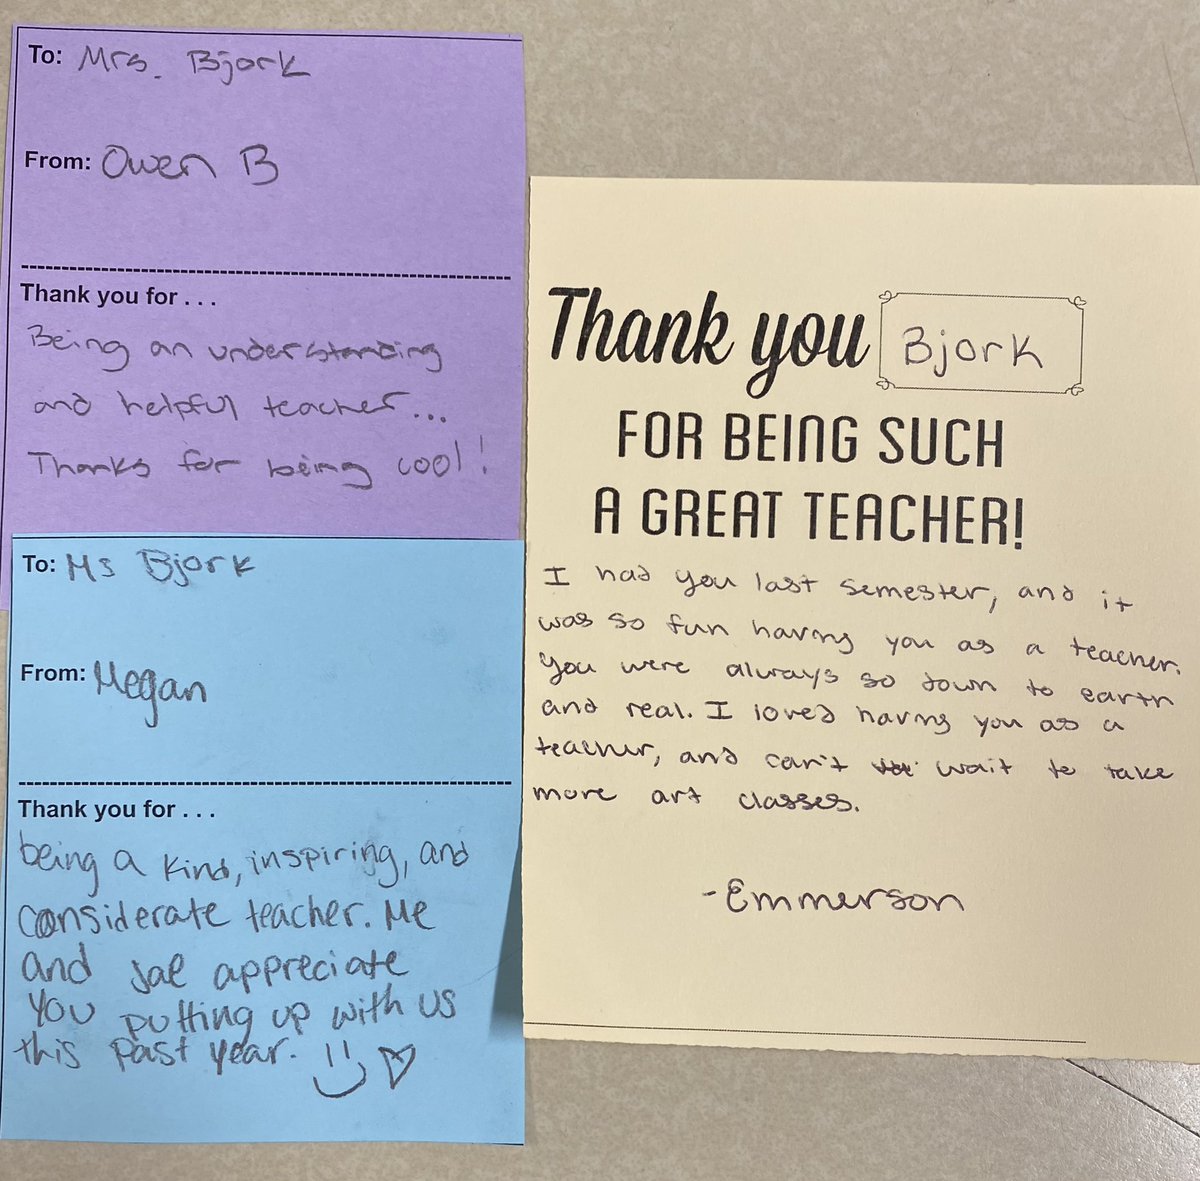 To: Mrs. Bjork
From: Owen B
Thank you for . . .
Being an understanding
and helpful teacher...
Thanks for being cool!
To: Ms Bjork
From: Megan
Thank you for . . .
being a kind, inspiring, and
considerate teacher. Me
and Jae appreciate
you putting up with us
this past year.
Thank you Bjork
FOR BEING SUCH
A GREAT TEACHER!
I had you last semester, and it
was so fun having you as a teacher.
You were always so down to earth
and real. I loved having you as a
teacher, and can't wait to take
more art classes.
-Emmerson